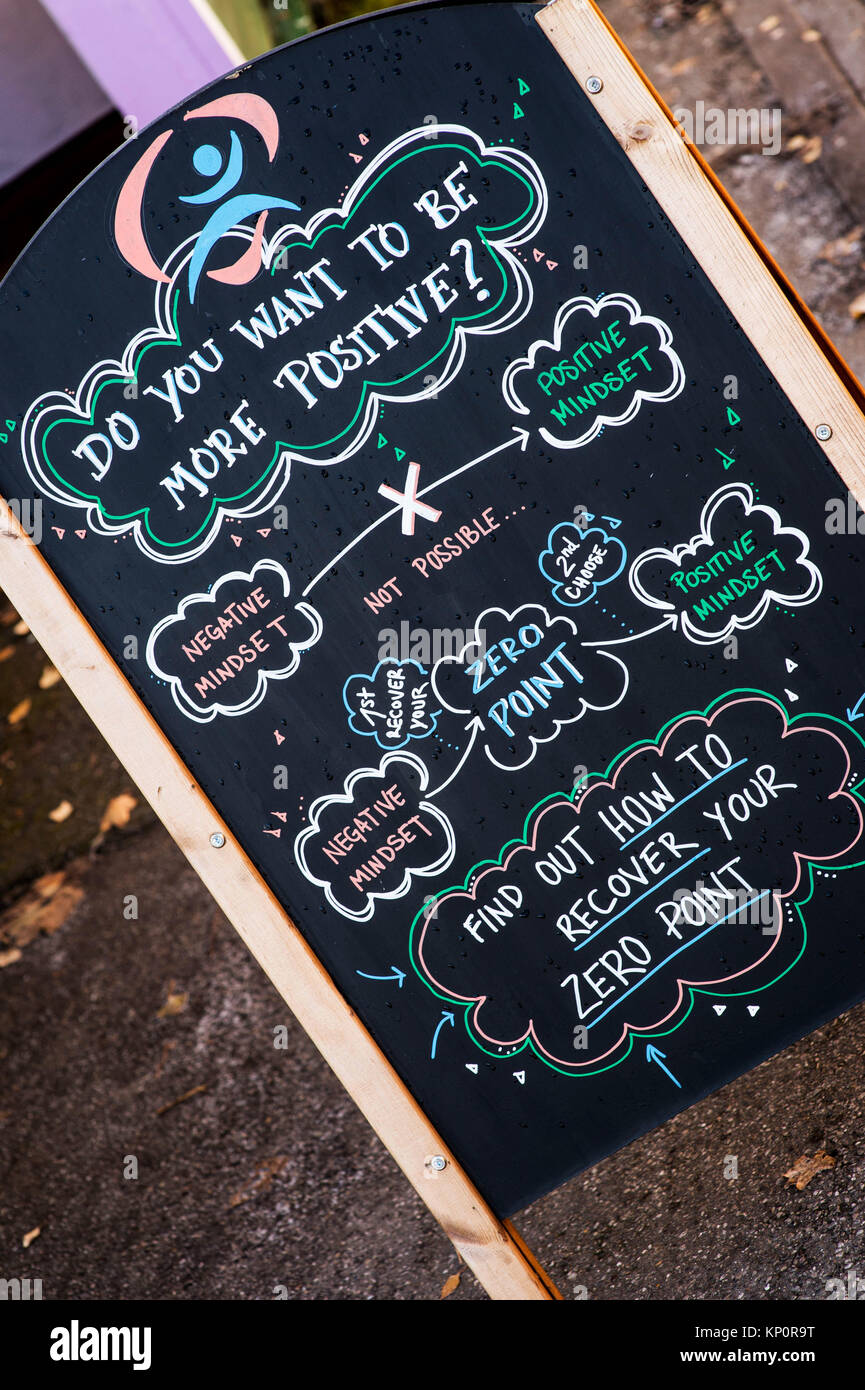 DO YOU WANT TO BE
MORE POSITIVE?
POSITIVE
MINDSET
NOT POSSIBLE...
NEGATIVE
MINDSET
2nd
CHOOSE
POSITIVE
MINDSET
ZERO
POINT
1st
RECOVER
YOUR
NEGATIVE
MINDSET
FIND OUT HOW TO
RECOVER YOUR
ZERO POINT
alamy
alamy
Image ID: KP0R9T
www.alamy.com